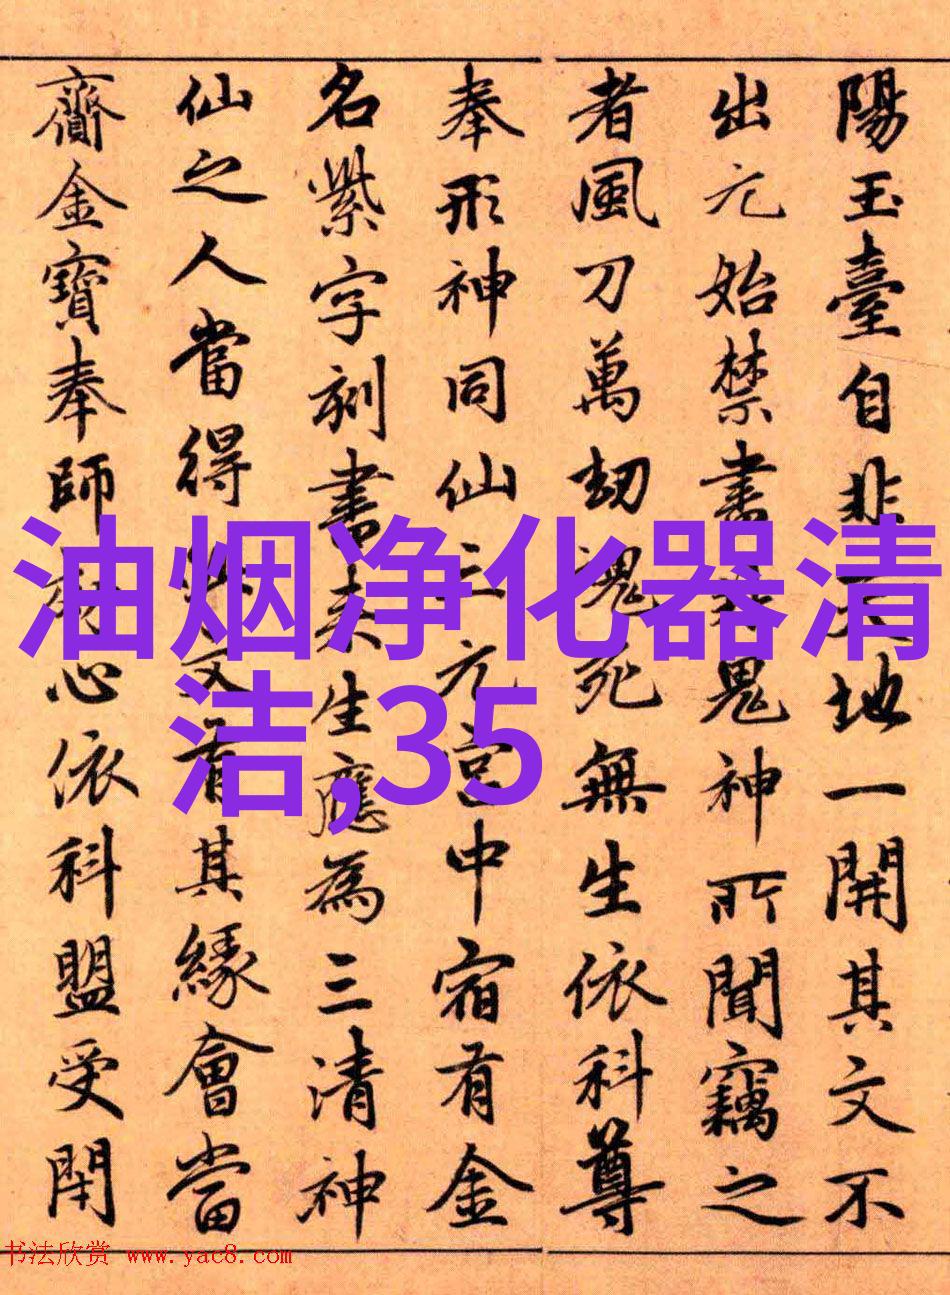 陽玉臺自非天地一開其文不
出元始禁書非鬼神所聞竊之
者風刀萬劫魂死無生依科尊
奉形神同仙三元宮中宿有金
名紫字刻書来生應為三清神
仙之人當得此文有其緣會當
齎金寶奉師効心依科盟受閇
油烟净化器清
洁,35
书法欣赏 www.yac8.com